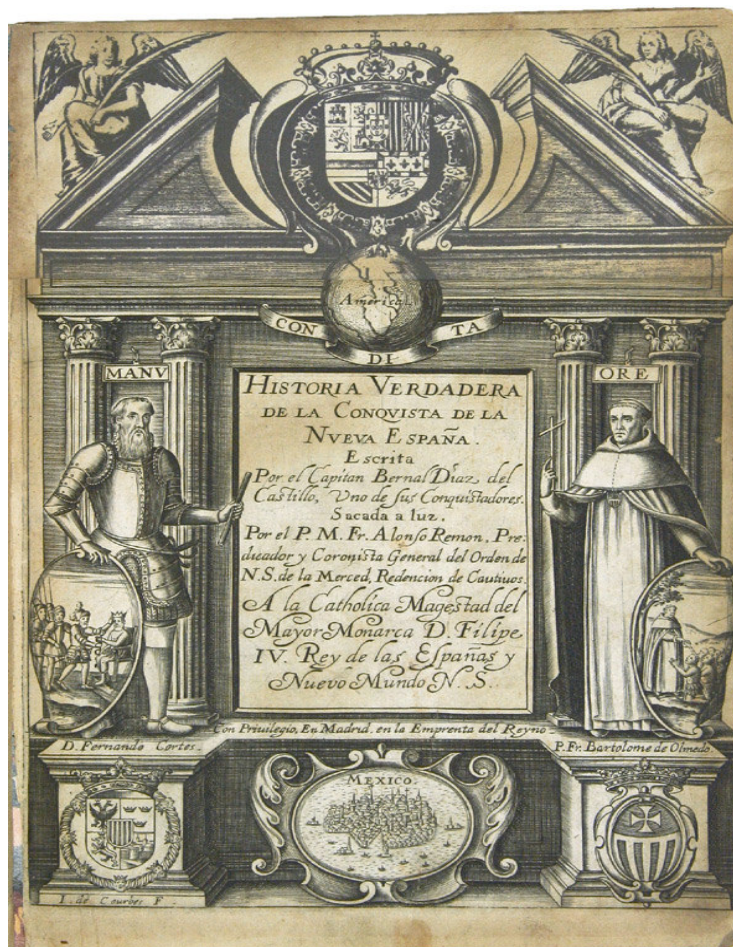 America.
CON
DI
TA
MANV
ORE
HISTORIA VERDADERA
DE LA CONQVISTA DE LA
NVEVA ESPAÑA.
Escrita
Por el Capitan Bernal Diaz, del
Castillo, Vno de sus Conquistadores.
Sacada a luz,
Por el P. M. Fr. Alonso Remon, Pre-
dicador y Coronista General del Orden de
N. S. de la Merced, Redencion de Cautiuos.
A la Catholica Magestad del
Mayor Monarca D. Filipe
IV. Rey de las Españas y
Nuevo Mundo N. S.
Con Privilegio, En Madrid, en la Emprenta del Reyno.
D. Fernando Cortes.
P. Fr. Bartolome de Olmedo.
MEXICO.
I. de Courbes F.